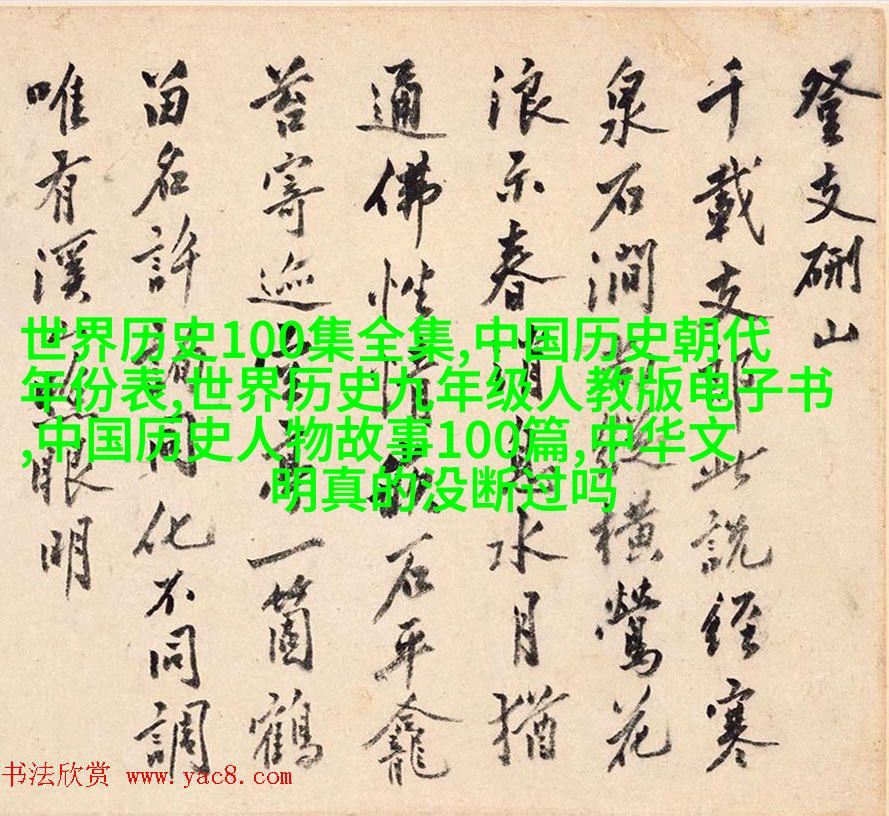 登支硎山
千載支郎此說經寒
泉石澗縱橫鶯花
浪示春消息水月猶
通佛性石平龕
苔寄一箇鶴
畱名許詢同化不同調
唯有溪照眼明
世界历史100集全集,中国历史朝代
年份表,世界历史九年级人教版电子书
,中国历史人物故事100篇,中华文
明真的没断过吗
书法欣赏 www.yac8.com